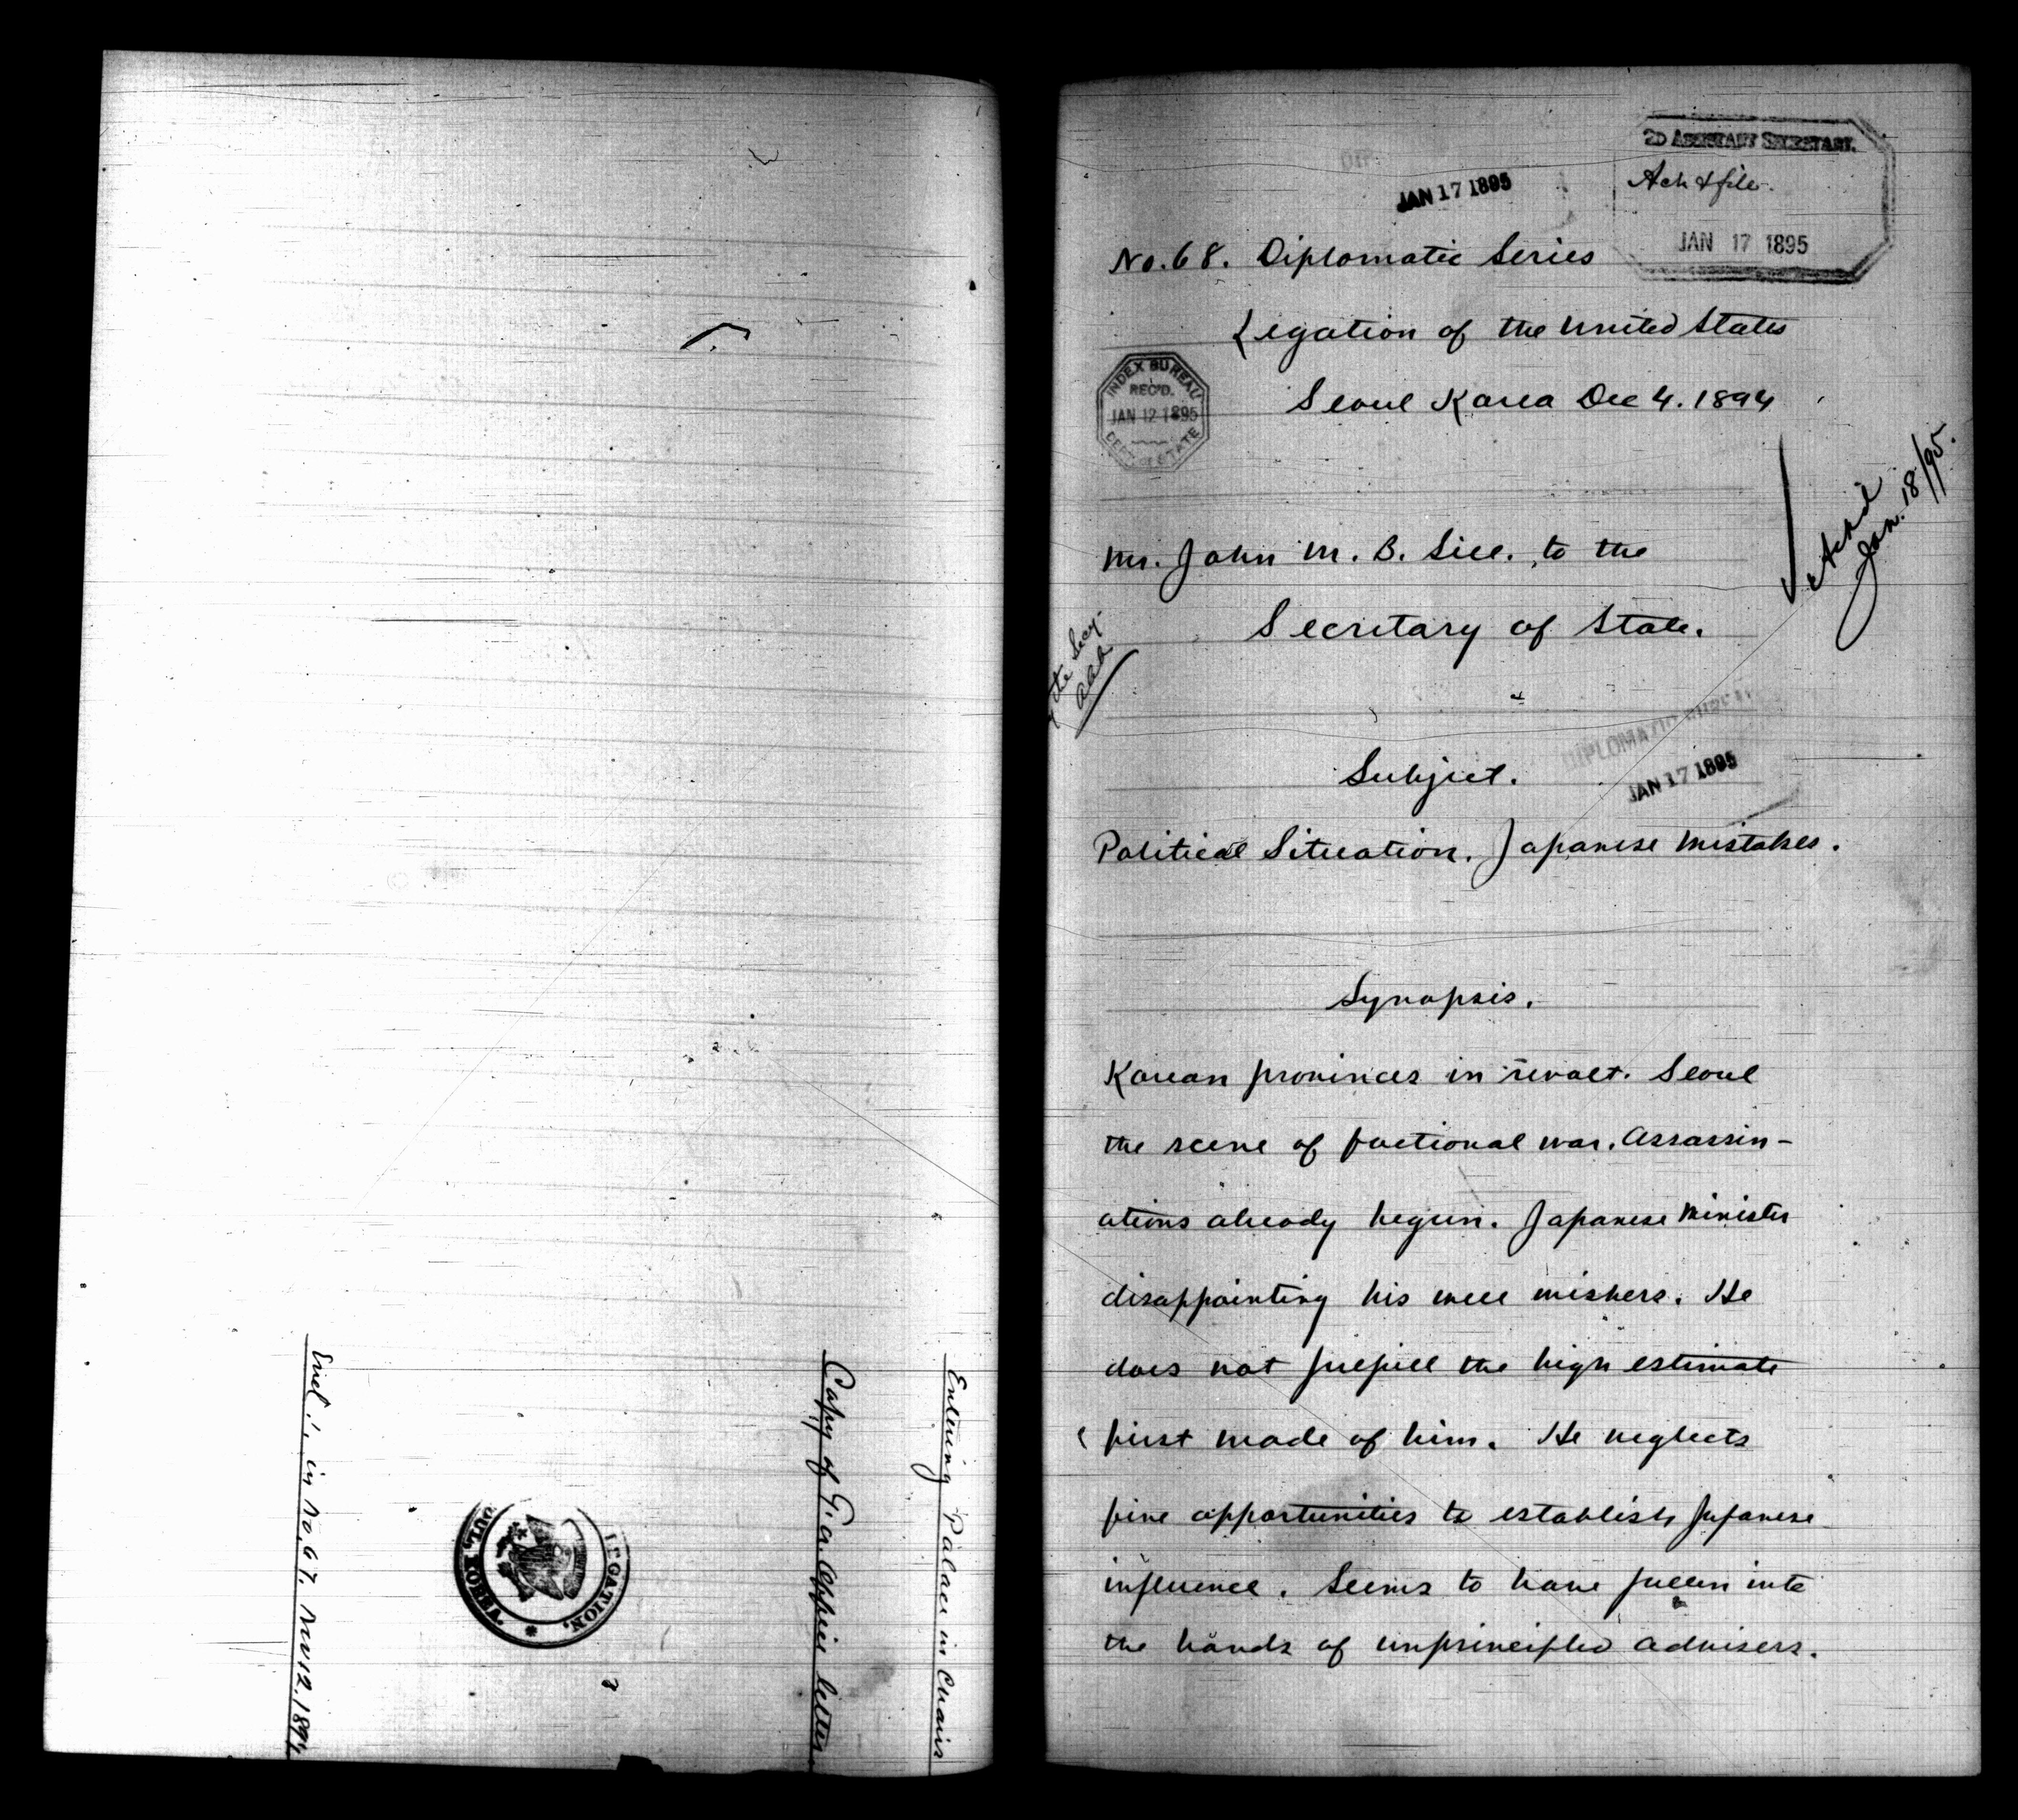 Encl. 1, in No. 67, Nov 2. 1894
LEGATION.
SEOUL, KOREA.
Copy of Gen. Office letter
Entering Palace in Chairs
2D ASSISTANT SECRETARY.
Ack & file.
JAN 17 1895
JAN 17 1895
No. 68. Diplomatic Series
Legation of the United States
Seoul Korea Dec 4. 1894
INDEX BUREAU
REC'D.
JAN 12 1895
DEPT OF STATE
Ack'd
Jan. 18/95.
Mr. John M. B. Sill. to the
Secretary of State.
the Secy
Subject.
DIPLOMATIC BUREAU
JAN 17 1895
Political Situation. Japanese Mistakes.
Synopsis.
Korean provinces in revolt. Seoul
the scene of factional war. Assassin-
ations already begun. Japanese Minister
disappointing his well wishers. He
does not fulfill the high estimate
first made of him. He neglects
fine opportunities to establish Japanese
influence. Seems to have fallen into
the hands of unprincipled advisers.